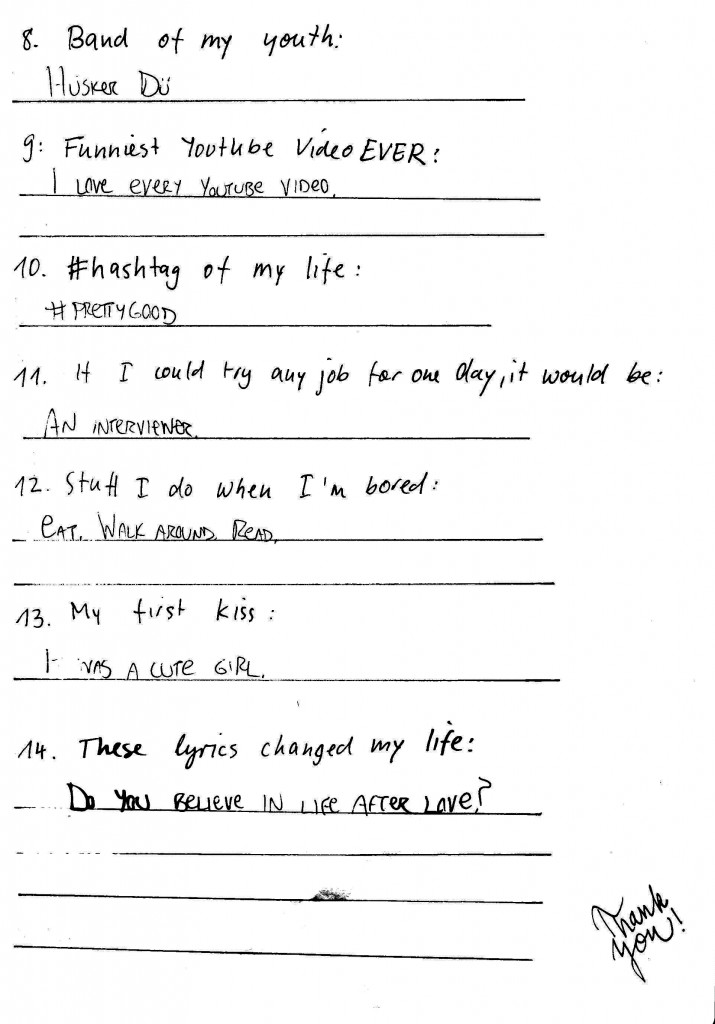 8. Band of my youth:
HÜSKER DÜ
9: Funniest Youtube Video EVER:
I LOVE EVERY YOUTUBE VIDEO.
10. #hashtag of my life:
#PRETTYGOOD
11. If I could try any job for one day, it would be:
AN INTERVIEWER.
12. Stuff I do when I'm bored:
EAT. WALK AROUND. READ.
13. My first kiss:
WAS A CUTE GIRL.
14. These lyrics changed my life:
DO YOU BELIEVE IN LIFE AFTER LOVE?
Thank
you!